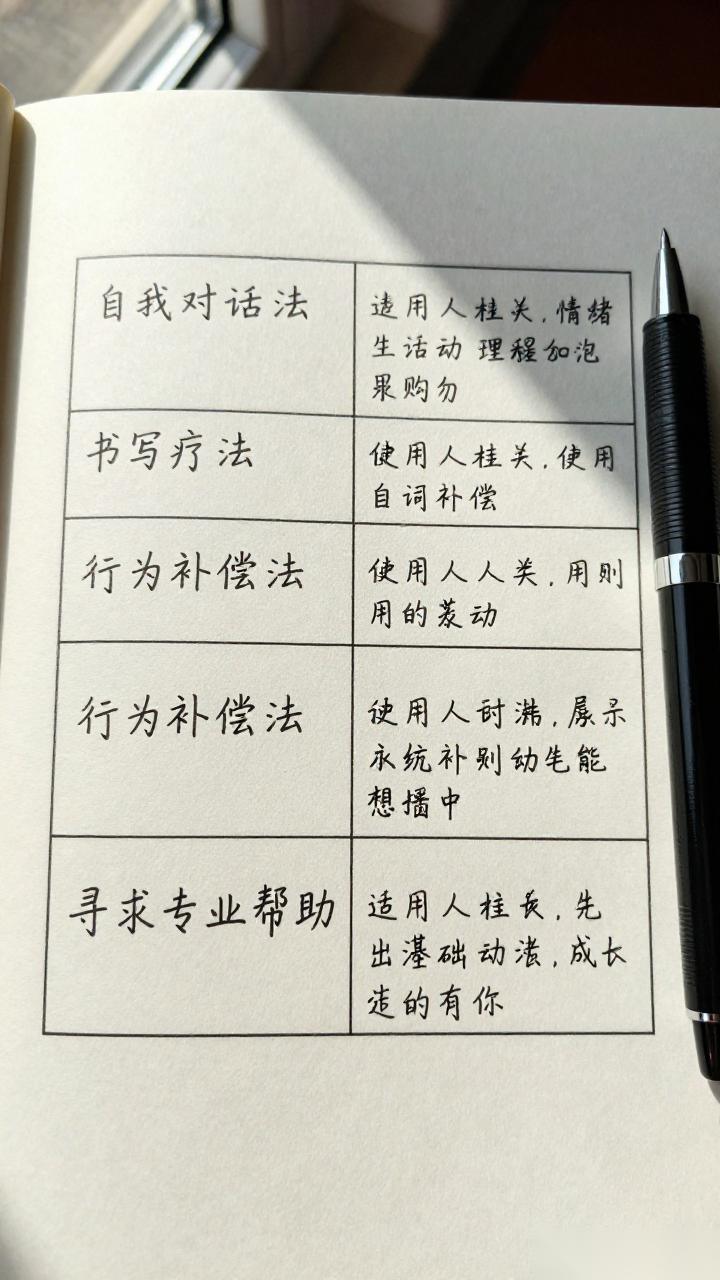 自我对话法
用人桂关,情绪
生活动 理程加泡
果购勿
书写疗法
使用人桂关,使用
自词补偿
行为补偿法
使用人人类,用则
用的动
行为补偿法
使用人时,
永统补别幼生能
想播中
寻求专业帮助
适用人桂长,先
出基础动,成长
造的有你